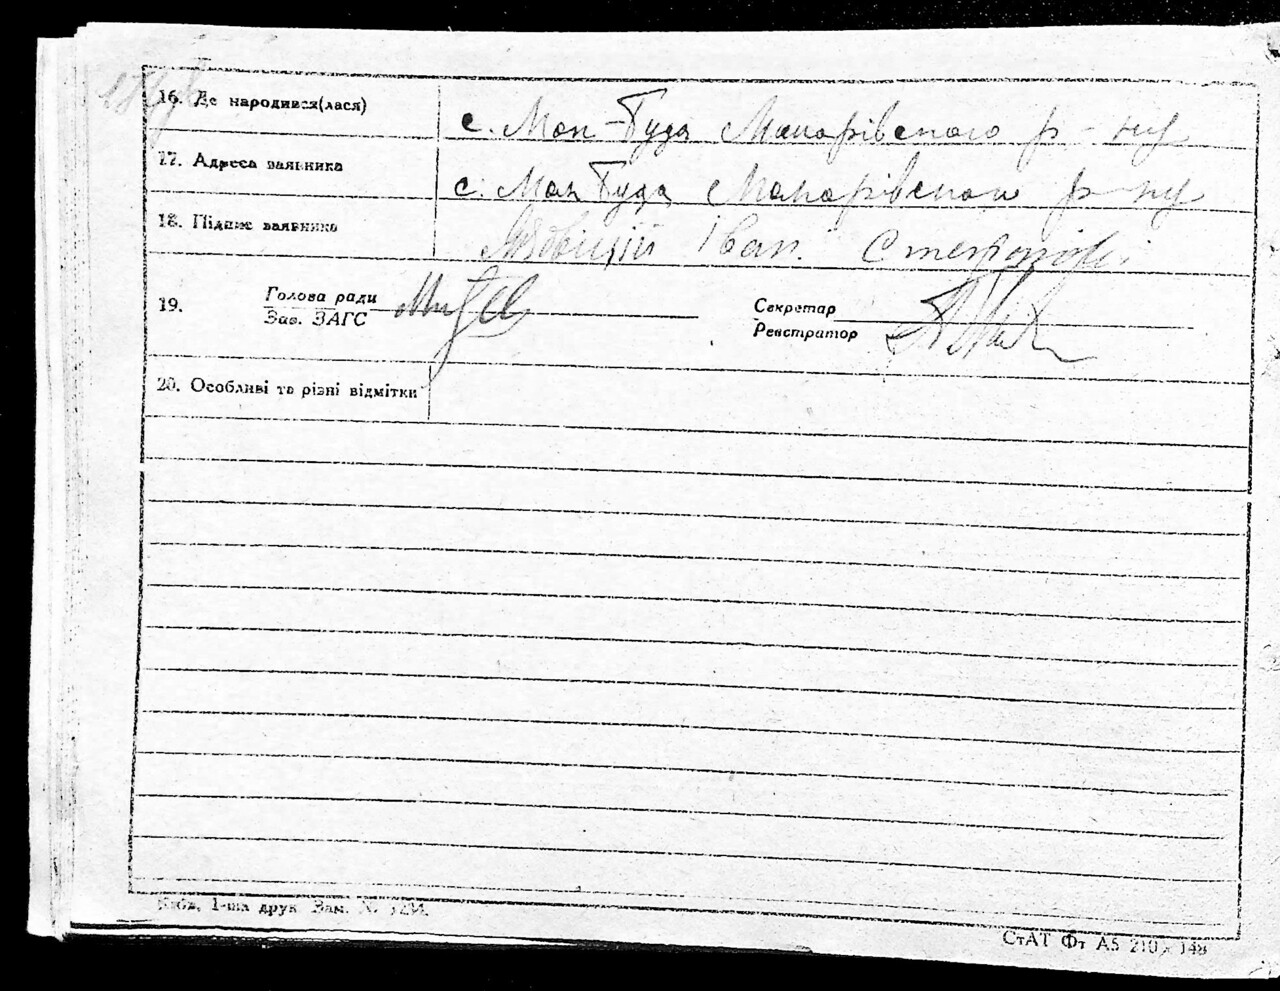 16. Де народився(лася)
с. Мак-Буда Макарівського р-ну
17. Адреса заявника
с. Мак Буда Макарівського р-ну
18. Підпис заявника
Іван
19.
Голова ради
Зав. ЗАГС
Секретар
Реєстратор
20. Особливі та різні відмітки
1-ша друк Зам. №
СтАТ Фт А5 210 148